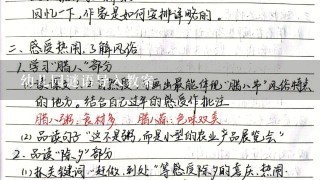 回忆一下，作家是如何安排详略的。
二、感受热闹，了解风俗
1.学习"腊八"部分
画出最能体现"腊八节"风俗特点
的地方。结合自己过年的感受作批注
腊八粥：食材多 腊八蒜：色味双美
(2)品读句子"这不是粥，而是小型的农业产品展览会"
2.品读"除夕"部分
(1)抓关键词"赶做、到处"等感受除夕的喜庆、热闹